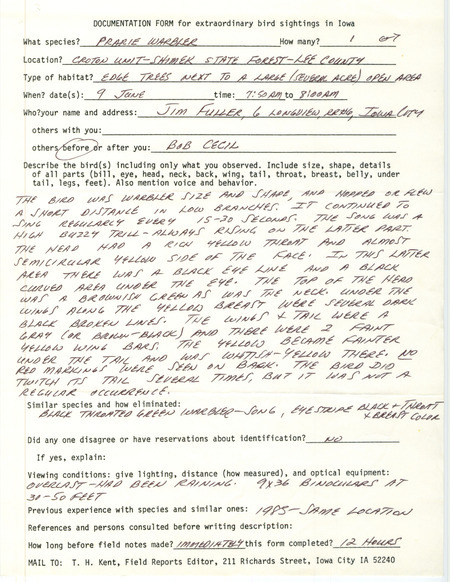 DOCUMENTATION FORM for extraordinary bird sightings in Iowa
What species? PRARIE WARBLER How many? 1
Location? CROTON UNIT-SHIMEK STATE FOREST-LEE COUNTY
Type of habitat? EDGE TREES NEXT TO A LARGE (SEVERAL ACRE) OPEN AREA
When? date(s): 9 JUNE time: 7:50AM to 8:00AM
Who?your name and address: JIM FULLER, 6 LONGVIEW RR#6, IOWA CITY
others with you:
others before or after you: BOB CECIL
Describe the bird(s) including only what you observed. Include size, shape, details
of all parts (bill, eye, head, neck, back, wing, tail, throat, breast, belly, under
tail, legs, feet). Also mention voice and behavior.
THE BIRD WAS WARBLER SIZE AND SHAPE, AND HOPPED OR FLEW
A SHORT DISTANCE IN LOW BRANCHES. IT CONTINUED TO
SING REGULARLY EVERY 15-20 SECONDS. THE SONG WAS A
HIGH BUZZY TRILL-ALWAYS RISING ON THE LATTER PART.
THE HEAD HAD A RICH YELLOW THROAT AND ALMOST
SEMICIRCULAR YELLOW SIDE OF THE FACE. IN THIS LATTER
AREA THERE WAS A BLACK EYE LINE AND A BLACK
CURVED AREA UNDER THE EYE. THE TOP OF THE HEAD
WAS A BROWNISH GREEN AS WAS THE NECK. UNDER THE
WINGS ALONG THE YELLOW BREAST WERE SEVERAL DARK
BLACK BROKEN LINES. THE WINGS & TAIL WERE A
GRAY (OR BROWN-BLACK) AND THERE WERE 2 FAINT
YELLOW WING BARS. THE YELLOW BECAME FAINTER
UNDER THE TAIL AND WAS WHITISH-YELLOW THERE. NO
RED MARKINGS WERE SEEN ON BACK. THE BIRD DID
TWITCH ITS TAIL SEVERAL TIMES, BUT IT WAS NOT A
REGULAR OCCURRENCE.
Similar species and how eliminated:
BLACK THROATED GREEN WARBLER-SONG, EYESTRIPE BLACK & THROAT
& BREAST COLOR
Did any one disagree or have reservations about identification? NO
If yes, explain:
Viewing conditions: give lighting, distance (how measured), and optical equipment:
OVERCAST-HAD BEEN RAINING. 9X36 BINOCULARS AT
30-50 FEET
Previous experience with species and similar ones: 1985-SAME LOCATION
References and persons consulted before writing description:
How long before field notes made? IMMEDIATELY this form completed? 12 HOURS
MAIL TO: T. H. Kent, Field Reports Editor, 211 Richards Street, Iowa City IA 52240